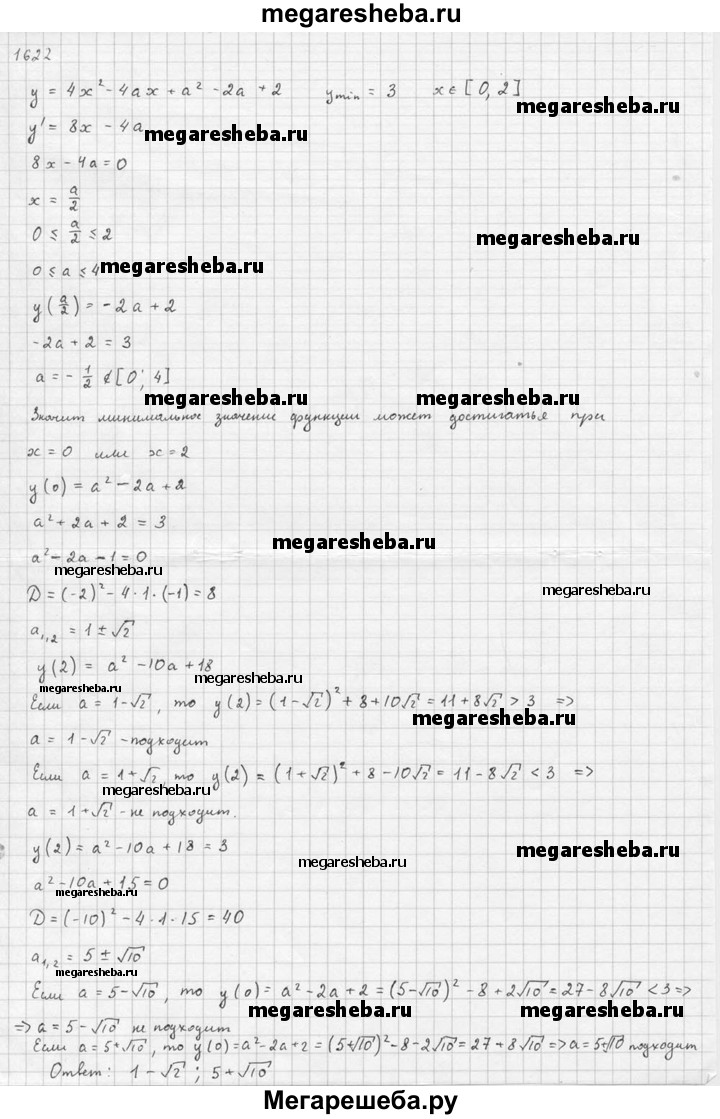 megaresheba.ru
1622
y = 4x² - 4ax + a² - 2a + 2    y min = 3    x ∈ [0, 2]
megaresheba.ru
y' = 8x - 4a
megaresheba.ru
8x - 4a = 0
x = a/2
0 ≤ a/2 ≤ 2
megaresheba.ru
0 ≤ a ≤ 4
megaresheba.ru
y(a/2) = -2a + 2
-2a + 2 = 3
a = -1/2 ∉ [0; 4]
megaresheba.ru megaresheba.ru
Значит минимальное значение функции может достигатья при
x = 0 или x = 2
y(0) = a² - 2a + 2
a² + 2a + 2 = 3
megaresheba.ru
a² - 2a - 1 = 0
megaresheba.ru
D = (-2)² - 4·1·(-1) = 8
megaresheba.ru
a₁,₂ = 1 ± √2
y(2) = a² - 10a + 18
megaresheba.ru megaresheba.ru
Если a = 1-√2, то y(2) = (1-√2)² + 8 + 10√2 = 11 + 8√2 > 3 =>
megaresheba.ru
a = 1 - √2 - подходит
Если a = 1+√2, то y(2) = (1+√2)² + 8 - 10√2 = 11 - 8√2 < 3 =>
megaresheba.ru
a = 1 + √2 - не подходит.
y(2) = a² - 10a + 18 = 3
megaresheba.ru megaresheba.ru
a² - 10a + 15 = 0
megaresheba.ru
D = (-10)² - 4·1·15 = 40
a₁,₂ = 5 ± √10
megaresheba.ru
Если a = 5-√10, то y(0) = a² - 2a + 2 = (5-√10)² - 8 + 2√10 = 27 - 8√10 < 3 =>
megaresheba.ru megaresheba.ru
=> a = 5 - √10 не подходит
Если a = 5+√10, то y(0) = a² - 2a + 2 = (5+√10)² - 8 - 2√10 = 27 + 8√10 => a = 5+√10 подходит
Ответ: 1 - √2; 5 + √10
Мегарешеба.ру